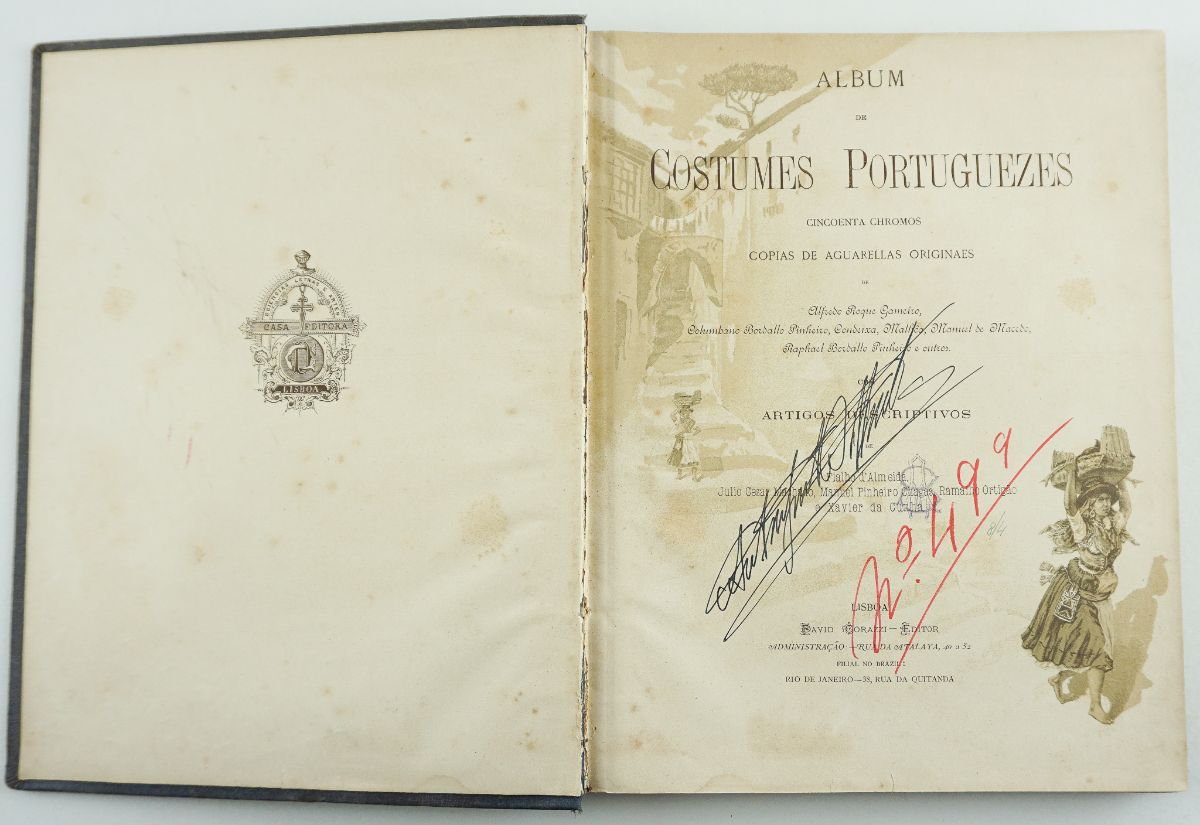 SCIENCIAS, LETRAS E ARTES
CASA EDITORA
LISBOA
ALBUM
DE
COSTUMES PORTUGUEZES
CINCOENTA CHROMOS
COPIAS DE AGUARELLAS ORIGINAES
DE
Alfredo Roque Gameiro,
Columbano Bordallo Pinheiro, Condeixa, Malhôa, Manuel de Macedo,
Raphael Bordallo Pinheiro e outros.
COM
ARTIGOS DESCRIPTIVOS
DE
Fialho d'Almeida,
Julio Cezar Machado, Manuel Pinheiro Chagas, Ramalho Ortigão
e Xavier da Cunha
N.º 499
LISBOA
DAVID CORAZZI—EDITOR
ADMINISTRAÇÃO—RUA DA ATALAYA, 40 a 52
FILIAL NO BRAZIL:
RIO DE JANEIRO—38, RUA DA QUITANDA